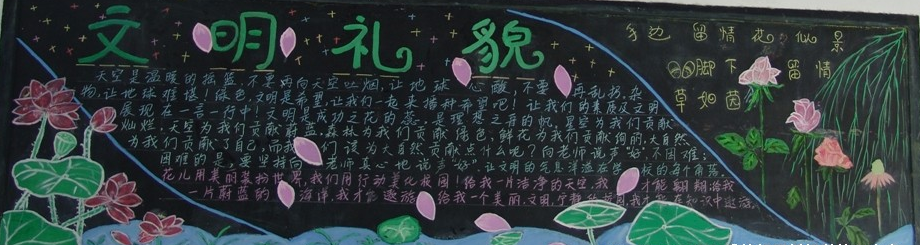 文明礼貌
手边留情花似景
脚下留情
草如茵
天空是温暖的摇篮,不要再向天空吐烟,让地球心酸,不要再乱扔杂
物,让地球难堪!绿色,文明是希望,让我们一起来播种希望吧!让我们的素质及文明
展现在一言一行中!文明是成功之花的蕊,是理想之舟的帆,星空为我们贡献
灿烂,天空为我们贡献蔚蓝,森林为我们贡献绿色,鲜花为我们贡献绚丽,大自然
为我们贡献了自己,而我们该为大自然贡献点什么呢?向老师说声"好"不困难;
困难的是要坚持向老师真心地说声"好"。让文明的气息洋溢在学校的每个角落。
花儿用美丽装扮世界,我们用行动美化校园!给我一片洁净的天空,我才能翱翔;给我
一片蔚蓝的海洋,我才能遨游;给我一个美丽,文明,宁静的校园,我才能在知识中遨游。